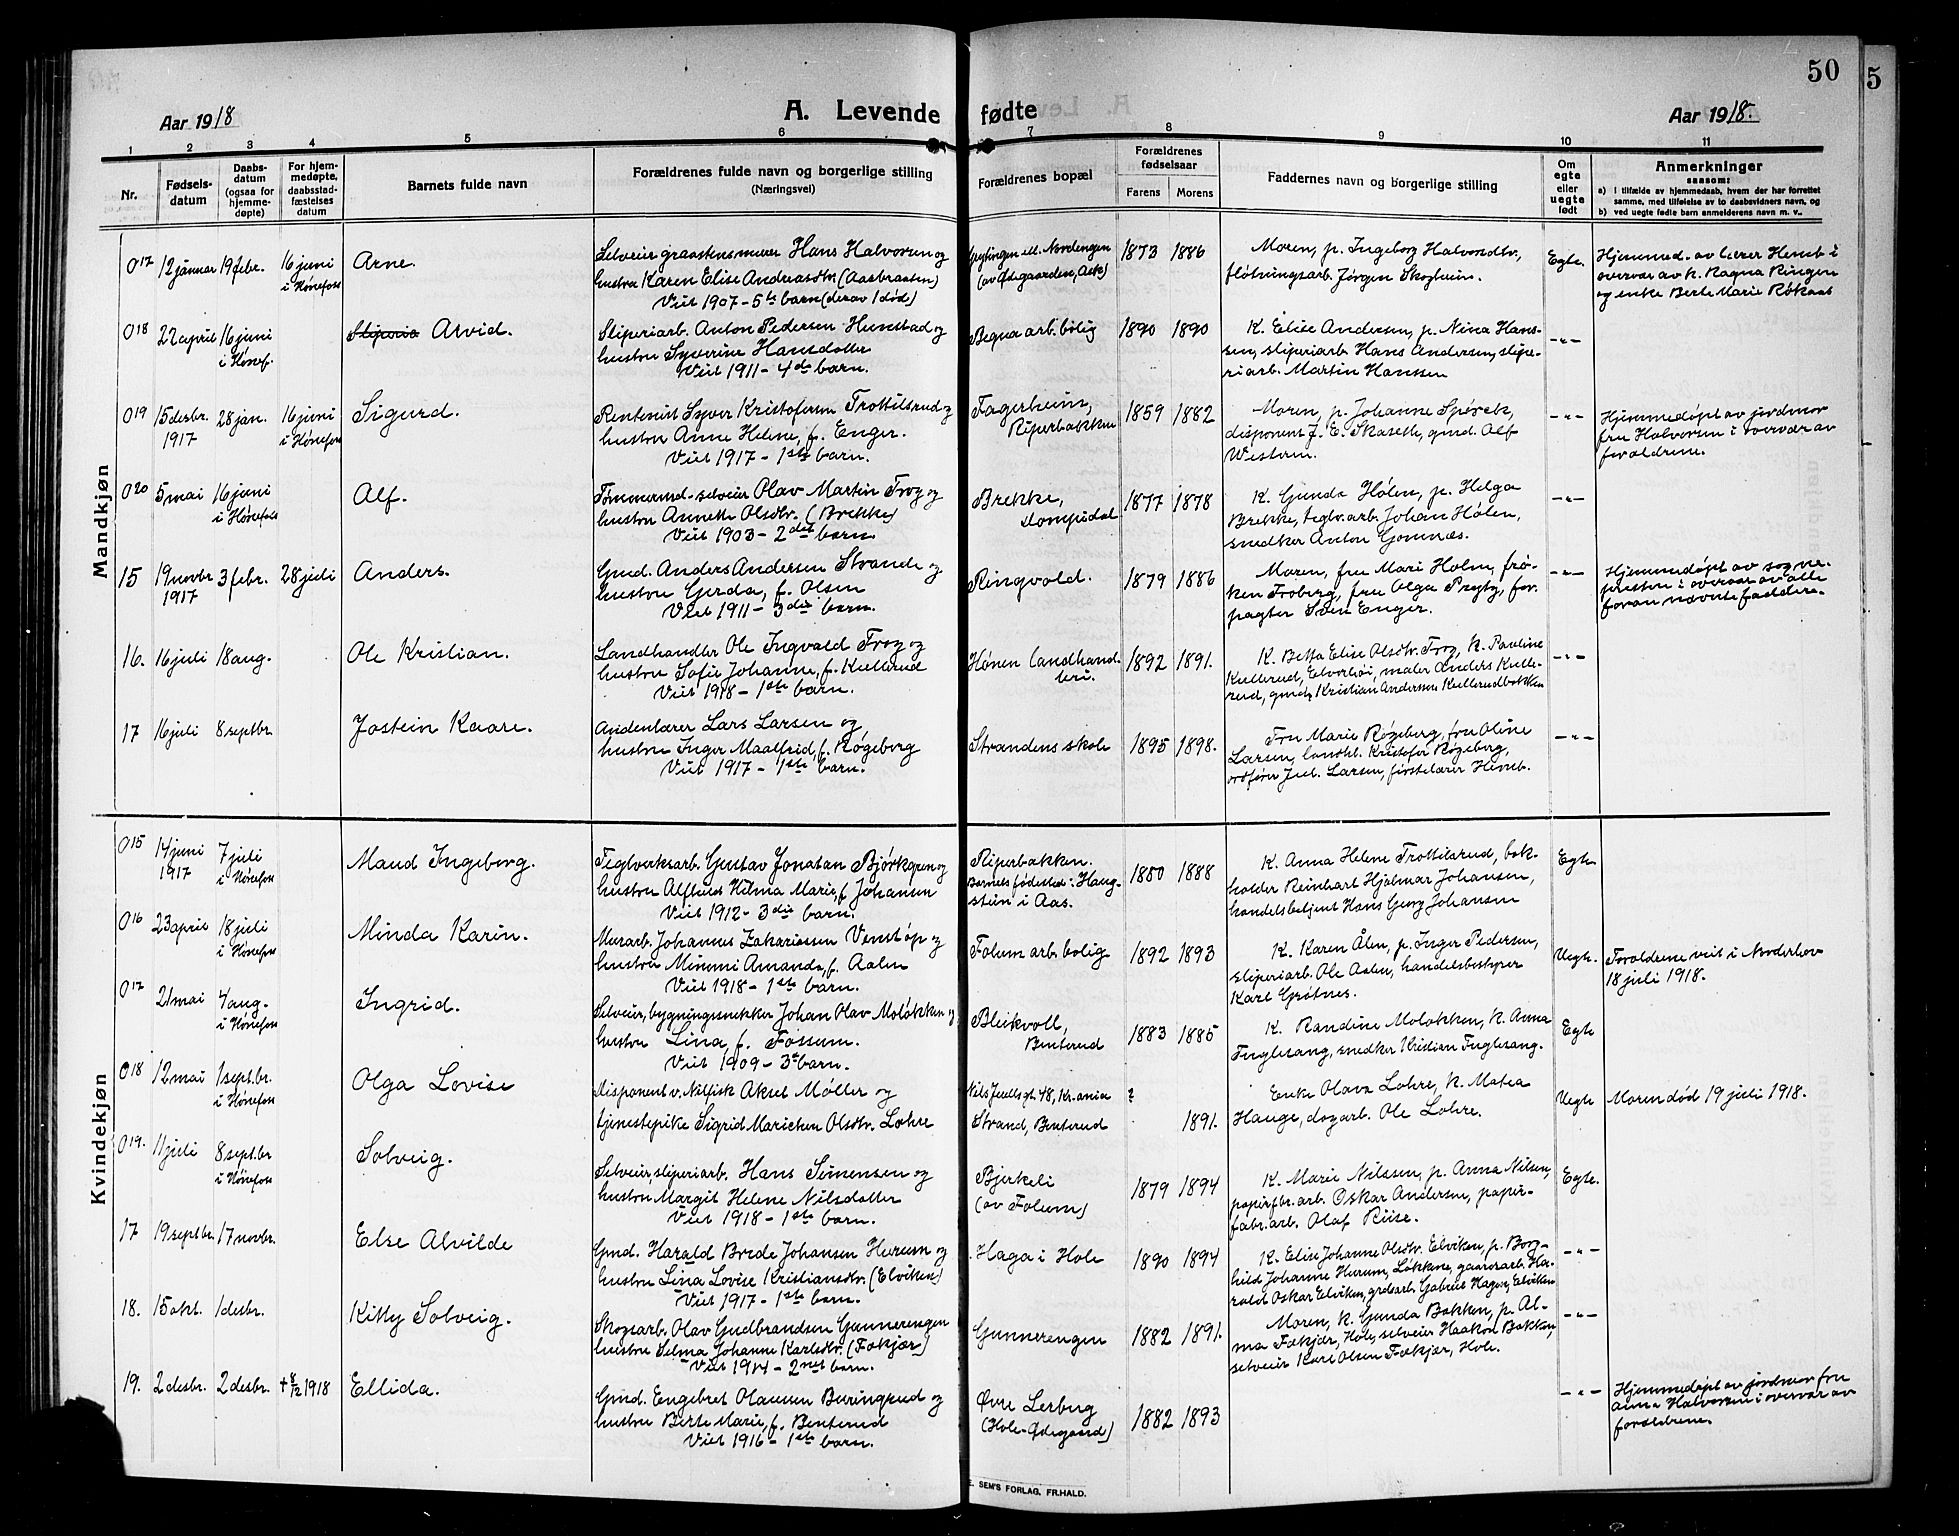 50
5
Aar 1918
A. Levende fødte
Aar 1918.
1 2 3 4 5 6 7 8 9 10 11
Nr.
Fødsels-
datum
Daabs-
datum
(ogsaa for
hjemme-
døpte)
For hjem-
medøpte,
daabsstad-
fæstelses
datum
Barnets fulde navn
Forældrenes fulde navn og borgerlige stilling
(Næringsvei)
Forældrenes bopæl
Forældrenes
fødselsaar
Farens Morens
Faddernes navn og borgerlige stilling
Om
egte
eller
uegte
født
Anmerkninger
saasom:
a) i tilfælde av hjemmedaab, hvem der har forrettet
samme, med tilføielse av to daabsvidners navn, og
b) ved uegte fødte barn anmelderens navn m. v..
Mandkjøn
017 12 januar 19 febr. 16 juni
i Hønefoss
Arne.
Selveier graastensmurer Hans Halvorsen og
hustru Karen Elise Andersdtr. (Aasbraaten)
Viet 1907 - 5te barn (derav 1 død)
ell. Nordengen
(av Ødegaarden, Ask)
1873 1886
Moren, p. Ingeborg Halvorsdtr.,
fløtningsarb. Jørgen Skogheim.
Egte.
Hjemmed. av lærer Hemb i
overvær av k. Ragna Ringen
og enke Berte Marie Røkaas
018 22 april 16 juni
i Hønef.
Arvid.
Sliperiarb. Anton Pedersen Hunstad og
hustru Syverine Hansdatter
Viet 1911 - 4de barn.
Begna arb. bolig
1890 1890
K. Elise Andersen, p. Nina Hans-
sen, sliperiarb. Hans Andersen, slipe-
riarb. Martin Hanssen
-"-
019 15 desbr.
1917
28 jan. 16 juni
i Hønefoss
Sigurd.
Rentenist Syver Kristofersen Trottilsrud og
hustru Anne Helene, f. Enger.
Viet 1917 - 1ste barn.
Fagerheim,
Riperbakken
1859 1882
Moren, p. Johanne Spørck,
disponent J. E. Skaseth, gmd. Alf
Westrum.
-"-
Hjemmedøpt av jordmor
fru Halvorsen i overvær av
forældrene.
020 5 mai 16 juni
i Hønefoss
Alf.
Tømmermd.-selveier Olav Martin Frog og
hustru Annette Olsdtr. (Brekke)
Viet 1903 - 2det barn.
Brekke,
Sompsdal
1877 1878
K. Gunda Hølen, p. Helga
Brekke, teglv.arb. Johan Hølen,
snedker Anton Gomnæs.
-"-
15 19 novbr.
1917
3 febr. 28 juli
Anders.
Gmd. Anders Andersen Strande og
hustru Gerda, f. Olsen
Viet 1911 - 3die barn.
Ringvold.
1879 1886
Moren, fru Mari Holm, frø-
ken Froberg, fru Olga Prytz, for-
pagter Sven Enger.
-"-
Hjemmedøpt av sogne-
presten i overvær av alle
foran nævnte faddere.
16. 16 juli 18 aug.
Ole Kristian.
Landhandler Ole Ingvald Frog og
hustru Sofie Johanne, f. Kullerud
Viet 1918 - 1ste barn.
Hønen landhand-
leri.
1892 1891.
K. Betta Elise Olsdtr. Frog, k. Pauline
Kullerud, Elverhøi, maler Anders Kulle-
rud, gmd. Kristian Andersen Kullerudbakken
-"-
17 16 juli 8 septbr.
Jostein Kaare.
Andenlærer Lars Larsen og
hustru Inger Maalfrid, f. Røgeberg
Viet 1917 - 1ste barn.
Strandens skole
1895 1898.
Fru Marie Røgeberg, fru Oline
Larsen, landhl. Kristofer Røgeberg,
ordfører Jul. Larsen, førstelærer Hemb.
-"-
Kvindekjøn
015 14 juni
1917
7 juli
i Hønefoss
Maud Ingeborg.
Teglverksarb. Gustav Jonatan Bjørkgren og
hustru Alfhild Hilma Marie, f. Johansen
Viet 1912 - 3die barn.
Riperbakken.
Barnets fødested: Haug-
stein i Aas.
1880 1888
K. Anna Helene Trottilsrud, bok-
holder Reinhart Hjalmar Johansen,
handelsbetjent Hans Georg Johansen
Egte
016 23 april 18 juli
i Hønefoss
Minda Karin.
Murarb. Johannes Zakariassen Venstøp og
hustru Mimmi Amanda, f. Aalen
Viet 1918 - 1ste barn.
Folum arb. bolig
1892 1893
K. Karen Ålen, p. Inger Pedersen,
sliperiarb. Ole Aalen, handelsbestyrer
Karl Grøtnes.
Uegte.
Forældrene viet i Norderhov
18 juli 1918.
017 21 mai 4 aug.
i Hønefoss
Ingrid.
Selveier, bygningssnekker Johan Olav Moløkken og
hustru Lina, f. Fossum.
Viet 1909 - 3e barn.
Bleikvoll,
Benterud
1883 1885
K. Randine Moløkken, k. Anna
Fuglesang, snedker Kristian Fuglesang.
Egte
018 12 mai 1 sept.br.
i Hønefoss
Olga Lovise
Disponent v. Nilfisk Aksel Møller og
tjenestepike Sigrid Marichen Olsdtr. Lohre
Nils Juelsgt. 48, Kr.ania
Strand, Benterud
?
1891.
Enke Olava Lohre, k. Matea
Hauge, dagarb. Ole Lohre.
Uegte
Moren død 19 juli 1918.
019. 11 juli 8 sept.br
i Hønefoss
Solveig.
Selveier, sliperiarb. Hans Simensen og
hustru Margit Helene Nilsdatter
Viet 1918 - 1ste barn.
Bjerkeli
(av Folum)
1879 1894
K. Marie Nilssen, p. Anna Nilsen,
papirfbr.arb. Oskar Andersen, papir-
fabr.arb. Olaf Riise.
Egte.
17 19 septbr. 17 novbr.
Else Alvilde
Gmd. Harald Brede Johansen Hurum og
hustru Lina Lovise Kristiansdtr. (Elviken)
Viet 1917 - 1ste barn.
Haga i Hole
1890 1894
K. Elise Johanne Olsdtr. Elviken, p. Borg-
hild Johanne Hurum, Løkkene, gaardsarb. Ha-
rald Oskar Elviken, grdsarb. Gabriel Hagen, Elviken
-"-
18. 15 okt. 1 desbr.
Kitty Solveig.
Skogsarb. Olav Gudbrandsen Gunnerengen
hustru Selma Johanne Karlsdtr. (Fækjær)
Viet 1914 - 2net barn.
Gunnerengen
1882 1891.
Moren, k. Gunda Bakken, p. Al-
ma Fækjær, Hole, selveier Haakon Bakken,
selveier Karl Olsen Fækjær, Hole.
-"-
19. 2 desbr. 2 desbr. † 8/12 1918
Ellida.
Gmd. Engebret Olaussen Buringrud og
hustru Berte Marie, f. Benterud
Viet 1916 - 1ste barn.
Øvre Lerberg
(Hole-Ødegaard)
1882 1893
-"-
Hjemmedøpt av jordmor fru
Anna Halvorsen i overvær av
forældrene.
E. SEM'S FORLAG, FR.HALD.